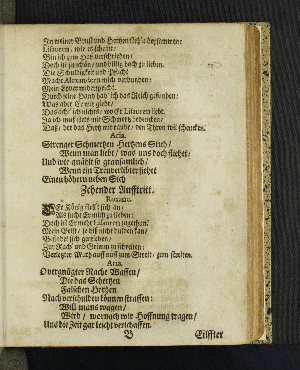 In meiner Brust und Hertzen stets beysammen:
Lisuren, wie es scheint/
Bin ich zum Haß verschrieben/
Doch ist sie schön/ und billig noch zu lieben.
Die Schuldigkeit und Pflicht
Macht Alexandern mich verbunden:
Mein Lieben widerspricht.
Durch seine Hand hab' ich das Reich gefunden:
Was aber Er mir giebt/
Das acht' ich nichts/ wo Er Lisuren liebt.
Ja ich muß stets mit Schmertz bedencken/
Daß/ der das Hertz mir raubt/ den Thron will schencken.
Aria.
Strenger Schmertzen Hertzens Stich/
Wenn man liebt/ was uns doch fliehet:
Und wie quählst so grausamlich/
Wenn ein Treuverliebter siehet
Einen höhern neben Sich
Zehender Aufftritt.
Der König stellt sich an/
Als sucht Er mich zu lieben:
Doch ist Er mehr Lisuren zugethan/
Mein Geist/ je diß nicht dulden kan/
Zur Rach' und Grimm zu schreiten:
Verletzter Muth auf! auf! zum Streit/ zum streiten.
Aria.
Vergnügter Rache Waffen/
Die das Schertzen
Falscher Hertzen
Nach verschulden können straffen:
Will man's wagen/
Wird/ wornach wir Hoffnung tragen/
Uns die Zeit gar leicht verschaffen.
B Eilffter